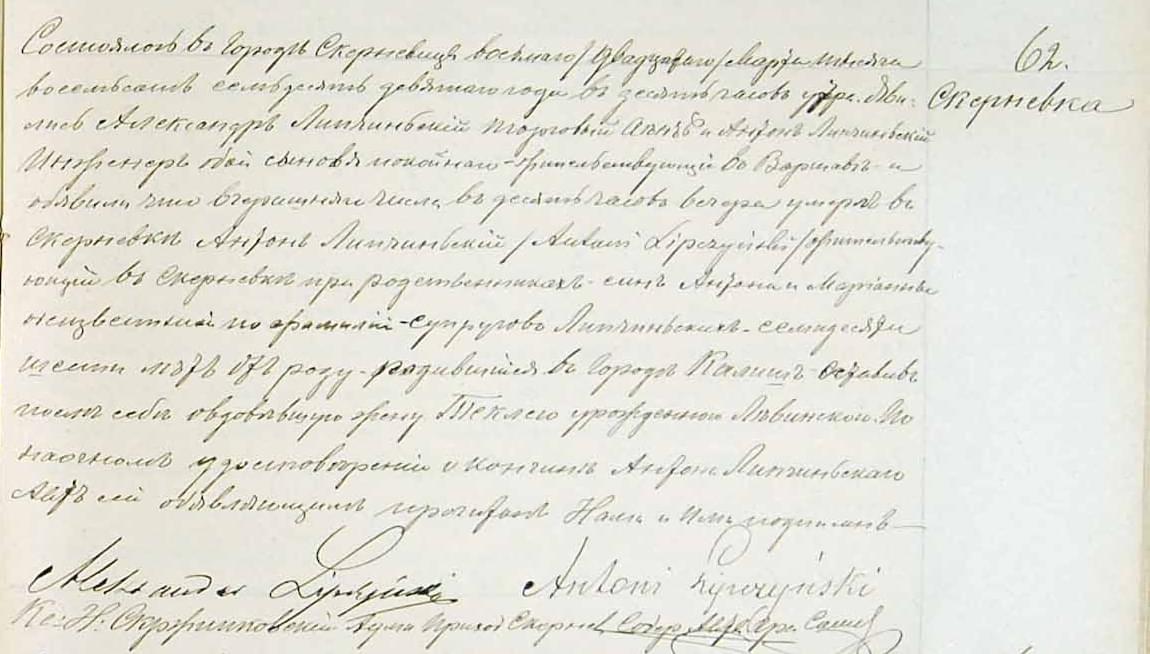 62.
Скерневка
Состоялось въ Городѣ Скерневицѣ восьмаго /двадцатаго/ Марта мѣсяца
восемьсотъ семьдесятъ девятаго года въ десять часовъ утра. Яви-
лись Александръ Липчинскій торговый Агентъ и Антонъ Липчиньскій
Инженеръ обой сыновья покойнаго жительствующій въ Варшавѣ и
объявили что вчерашняго числа въ десять часовъ вечера умеръ въ
Скерневкѣ Антонъ Липчиньскій /Antoni Lipczyński/ жительству-
ющій въ Скерневкѣ при родственникахъ - сынъ Антона и Маріанны
неизвестной по фамиліи - супруговъ Липчиньскихъ - семидесяти
шести лѣтъ отъ роду - родившійся въ Городѣ Калишъ - оставивъ
послѣ себя овдовѣвшую жену Теклею урожденною Лѣвинскою. По
наочномъ удостовѣреніи о кончинѣ Антона Липчиньскаго
Актъ сей объявляющимъ прочитанъ Нами и Ими подписанъ —
Aleksander Lipczyński Antoni Lipczyński
Кс: Н: Скерн. Содер. Акт. Гра. Сост.